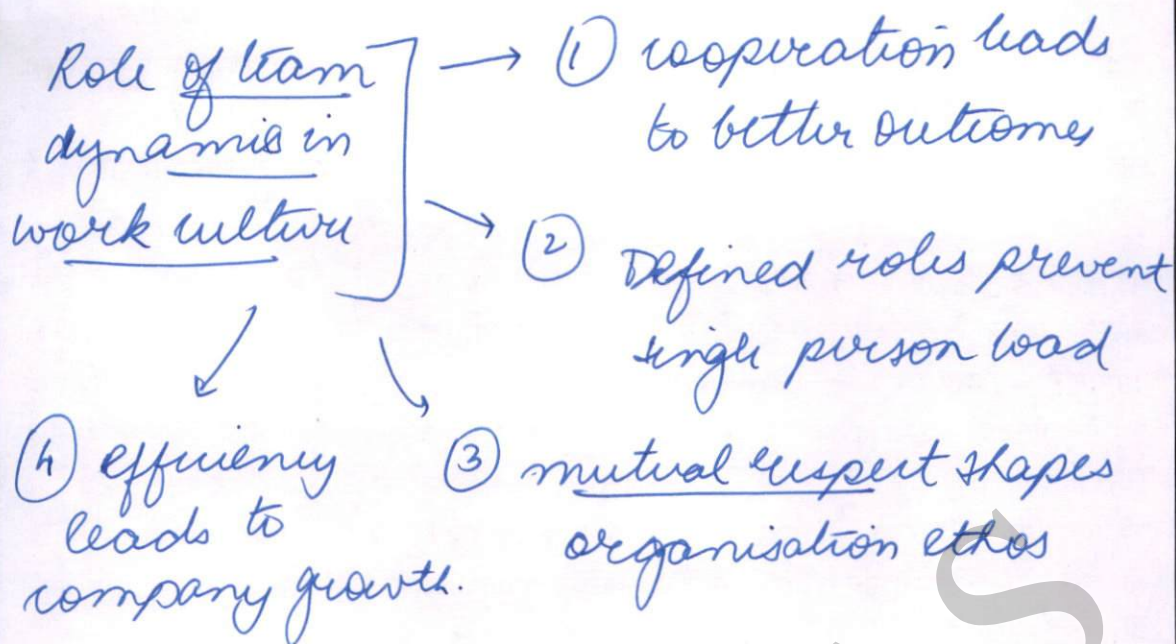 Role of team
dynamis in
work culture
① cooperation leads
to better outcomes
② Defined roles prevent
single person load
③ mutual respect shapes
organisation ethos
④ efficiency
leads to
company growth.
S